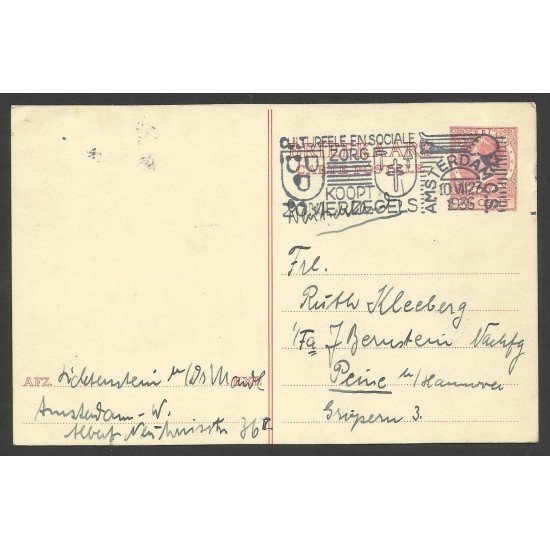 CULTUREELE EN SOCIALE
ZORG
KOOPT
ZOMERZEGELS
AMSTERDAM C.S.
10 VII 23
1936
BRIEFKAART
Frl.
Ruth Kleeberg
Fa J Bernstein Nachfg
Peine b/Hannover
Gröpern 3.
AFZ.
Lichtenstein
Amsterdam-W.
36 II